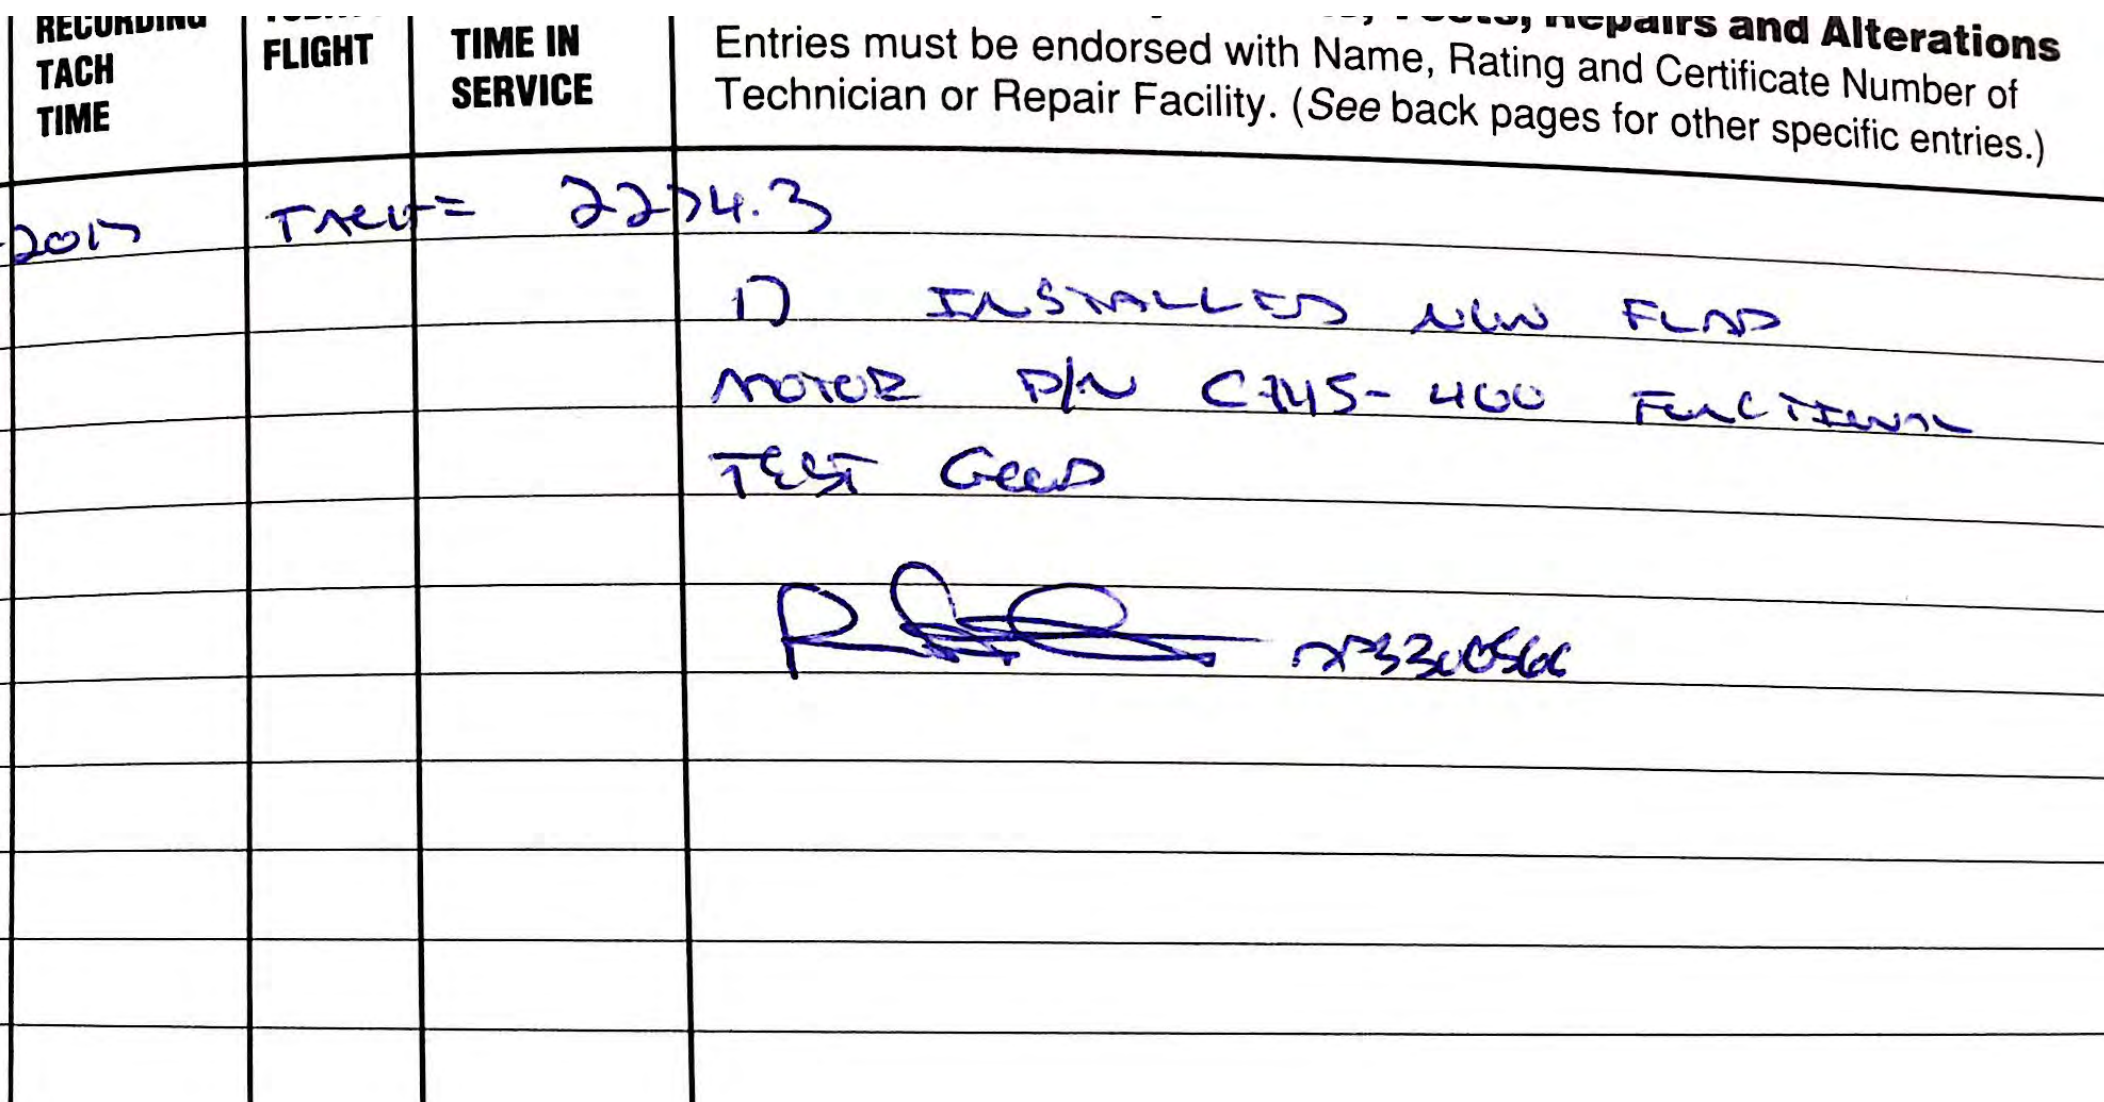 RECORDING TACH TIME
FLIGHT
TIME IN SERVICE
Repairs and Alterations
Entries must be endorsed with Name, Rating and Certificate Number of
Technician or Repair Facility. (See back pages for other specific entries.)
2017 TACH= 2274.3
1) INSTALLED NEW FLAP
MOTOR P/N C-745-400 FUNCTIONAL
TEST GOOD